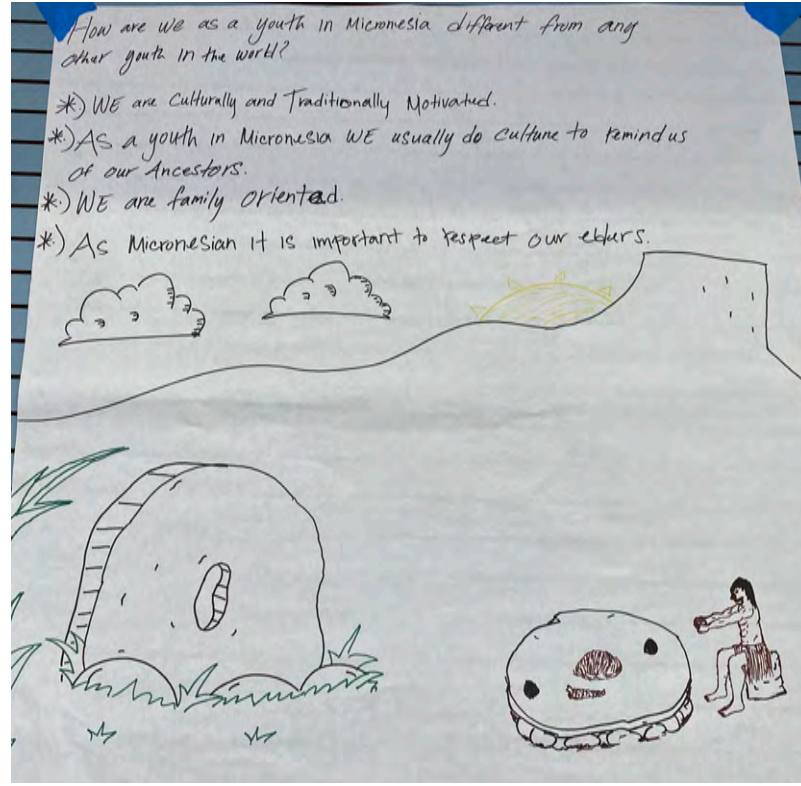 How are we as a youth in Micronesia different from any
other youth in the world?
*) WE are Culturally and Traditionally Motivated.
*) AS a youth in Micronesia WE usually do culture to remind us
of our Ancestors.
*) WE are family oriented.
*) As Micronesian it is important to respect our eldurs.